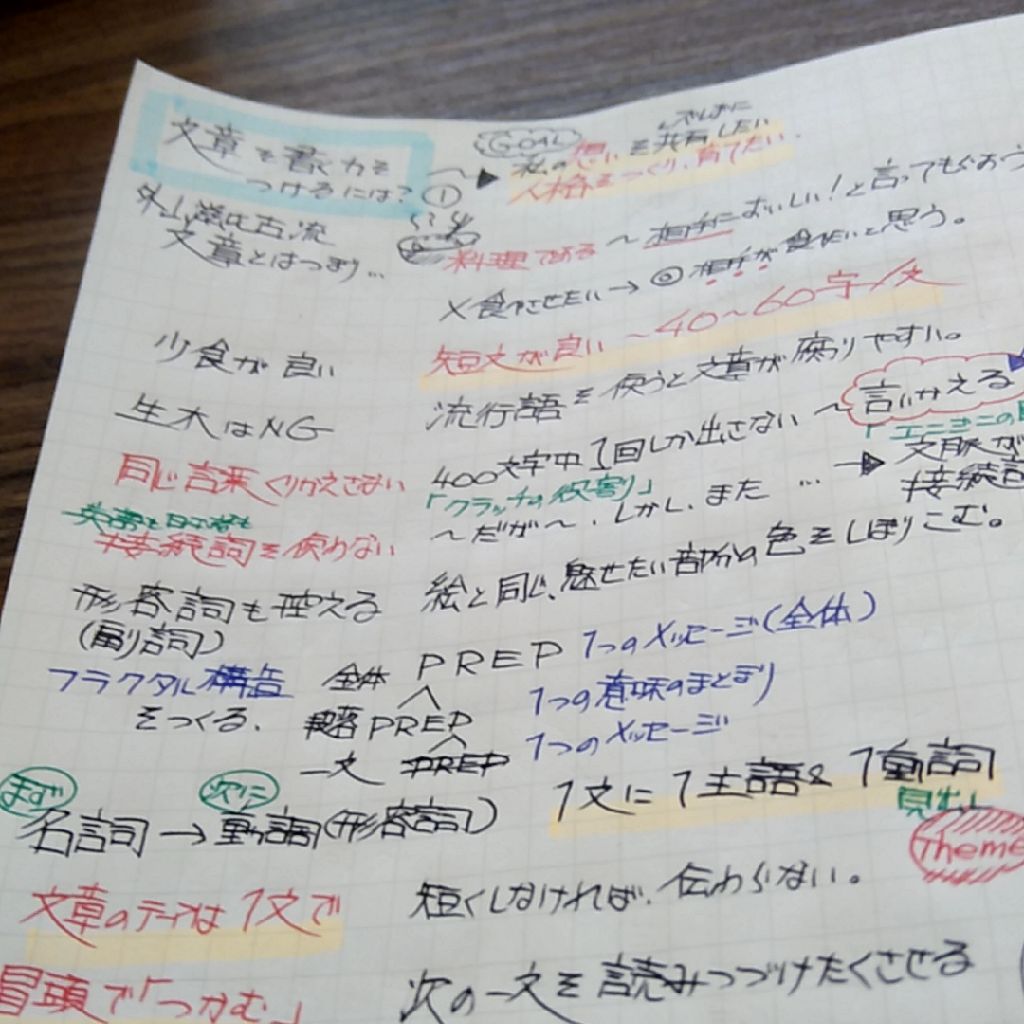 文章を書く力を
つけるには?
①
GOAL
ことばに
私の想いを共有したい
人格をつくり、育てたい.
外山滋比古流
文章とはつまり…
料理である ~ 相手においしい!と言ってもらおう
×食べさせたい→◎相手が食べたいと思う。
少食が良い 短文が良い ~40~60字/文
生木はNG 流行語を使うと文章が腐りやすい。
同じ言葉くりかえさない 400文字中1回しか出さない ~ 言いかえる
「クラッチの役割」
接続詞を使わない ~だが~、しかし、また … → 文脈が
接続詞
形容詞も控える 絵と同じ、魅せたい部分の色をしぼりこむ。
(副詞)
フラクタル構造 全体 PREP 1つのメッセージ(全体)
をつくる. 段落 PREP 1つの意味のまとまり
一文 PREP 1つのメッセージ
まず 次に
名詞→動詞(形容詞) 1文に1主語&1動詞
見出し
Theme
文章のテーマは1文で 短くしなければ、伝わらない。
冒頭で「つかむ」 次の一文を読みつづけたくさせる